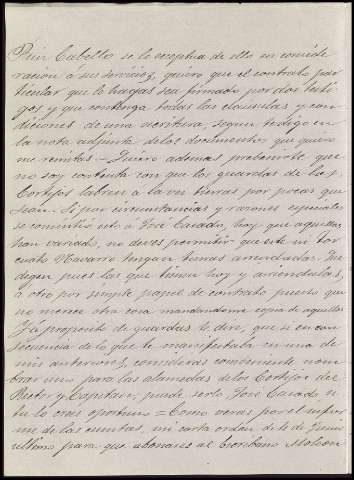 Ruiz Cabello se le exceptua de ello en conside
racion á sus servicios, quiero que el contrato par
ticular que le hagas sea firmado por dos testi
gos y que contenga todas las clausulas y con
diciones de una escritura, segun te digo en
la nota adjunta de los documentos que quiero
me remitas = Quiero ademas prebenirte que
no soy contenta con que los guardas de los
Cortijos labren á la vez tierras por pocas que
sean. Si por circunstancias y razones especiales
se consintió esto á José Casado, hoy que aquellas
han variado, no deves permitir que este ni Tor
cuato Navarro tengan tierras arrendadas.
degen pues las que tienen hoy y arriendalas
á otro por simple papel de contrato puesto que
no merece otra cosa mandandome copia de aquellos
Y á proposito de guardas te diré, que si en con
secuencia de lo que te manifestaba en una de
mis anteriores, consideras combeniente nom
brar uno para las alamedas de los Cortijos del
Rector y Capitan, puede serlo José Casado, si
tu lo crees oportuno = Como veras por el infor
me de las cuentas, mi carta orden de 16 de Junio
ultimo para que abonares al Escribano